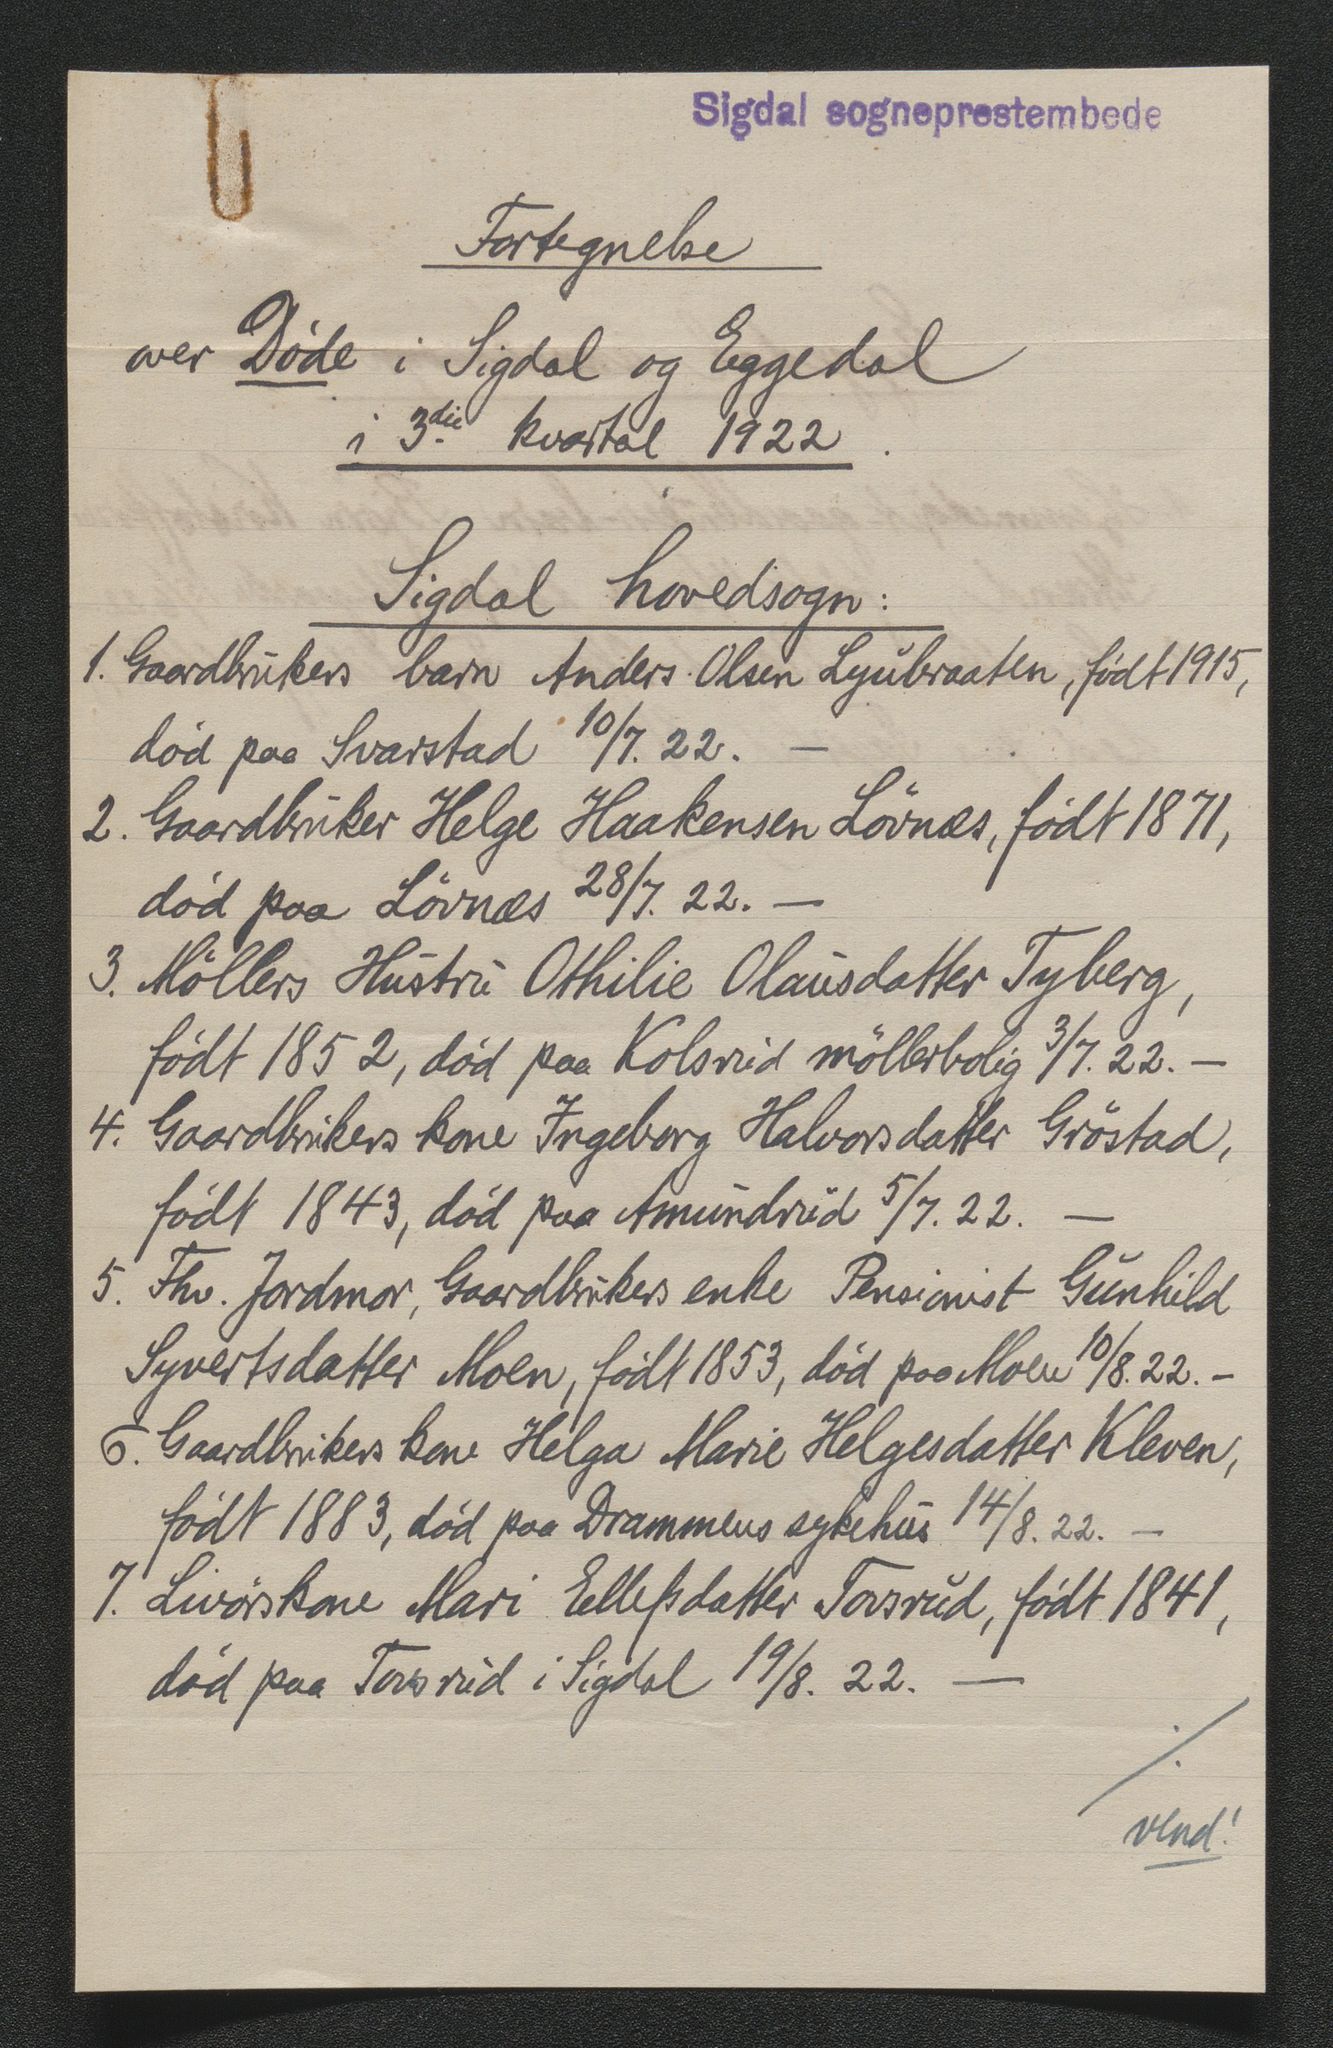 Sigdal sogneprestembede
Fortegnelse
over Døde i Sigdal og Eggedal
i 3die kvartal 1922.
Sigdal hovedsogn:
1. Gaardbrukers barn Anders Olsen Lyubraaten, født 1915,
død paa Svarstad 10/7. 22. —
2. Gaardbruker Helge Haakensen Lövnæs, født 1871,
død paa Lövnæs 28/7. 22. —
3. Möllers Hustru Othilie Olausdatter Tyberg,
født 1852, død paa Kolsrud möllerbolig 3/7. 22. —
4. Gaardbrukers kone Ingeborg Halvorsdatter Gröstad,
født 1843, død paa Amundrud 5/7. 22. —
5. Fhv. Jordmor, Gaardbrukers enke Pensionist Gunhild
Syvertsdatter Moen, født 1853, død paa Moen 10/8. 22. —
6. Gaardbrukers kone Helga Marie Helgesdatter Kleven,
født 1883, død paa Drammens sykehus 14/8. 22. —
7. Livörskone Mari Ellefsdatter Torsrud, født 1841,
død paa Torsrud i Sigdal 19/8. 22. —
./.
vend!